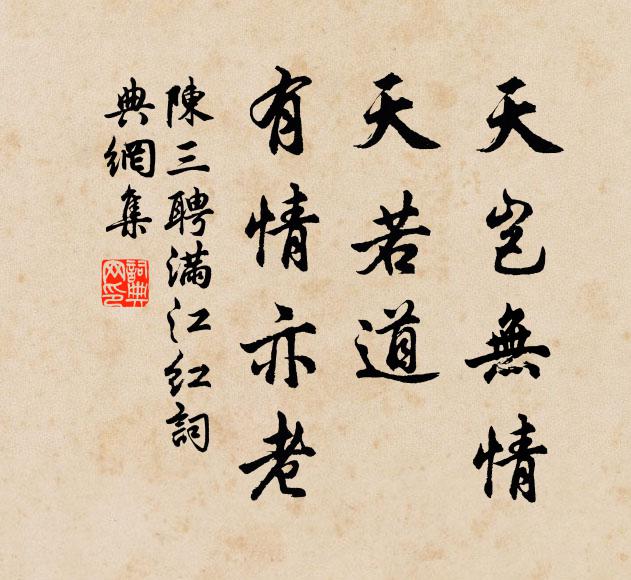 天豈無情
天若道
有情亦老
陳三聘滿江紅詞
典網集
詞典網印